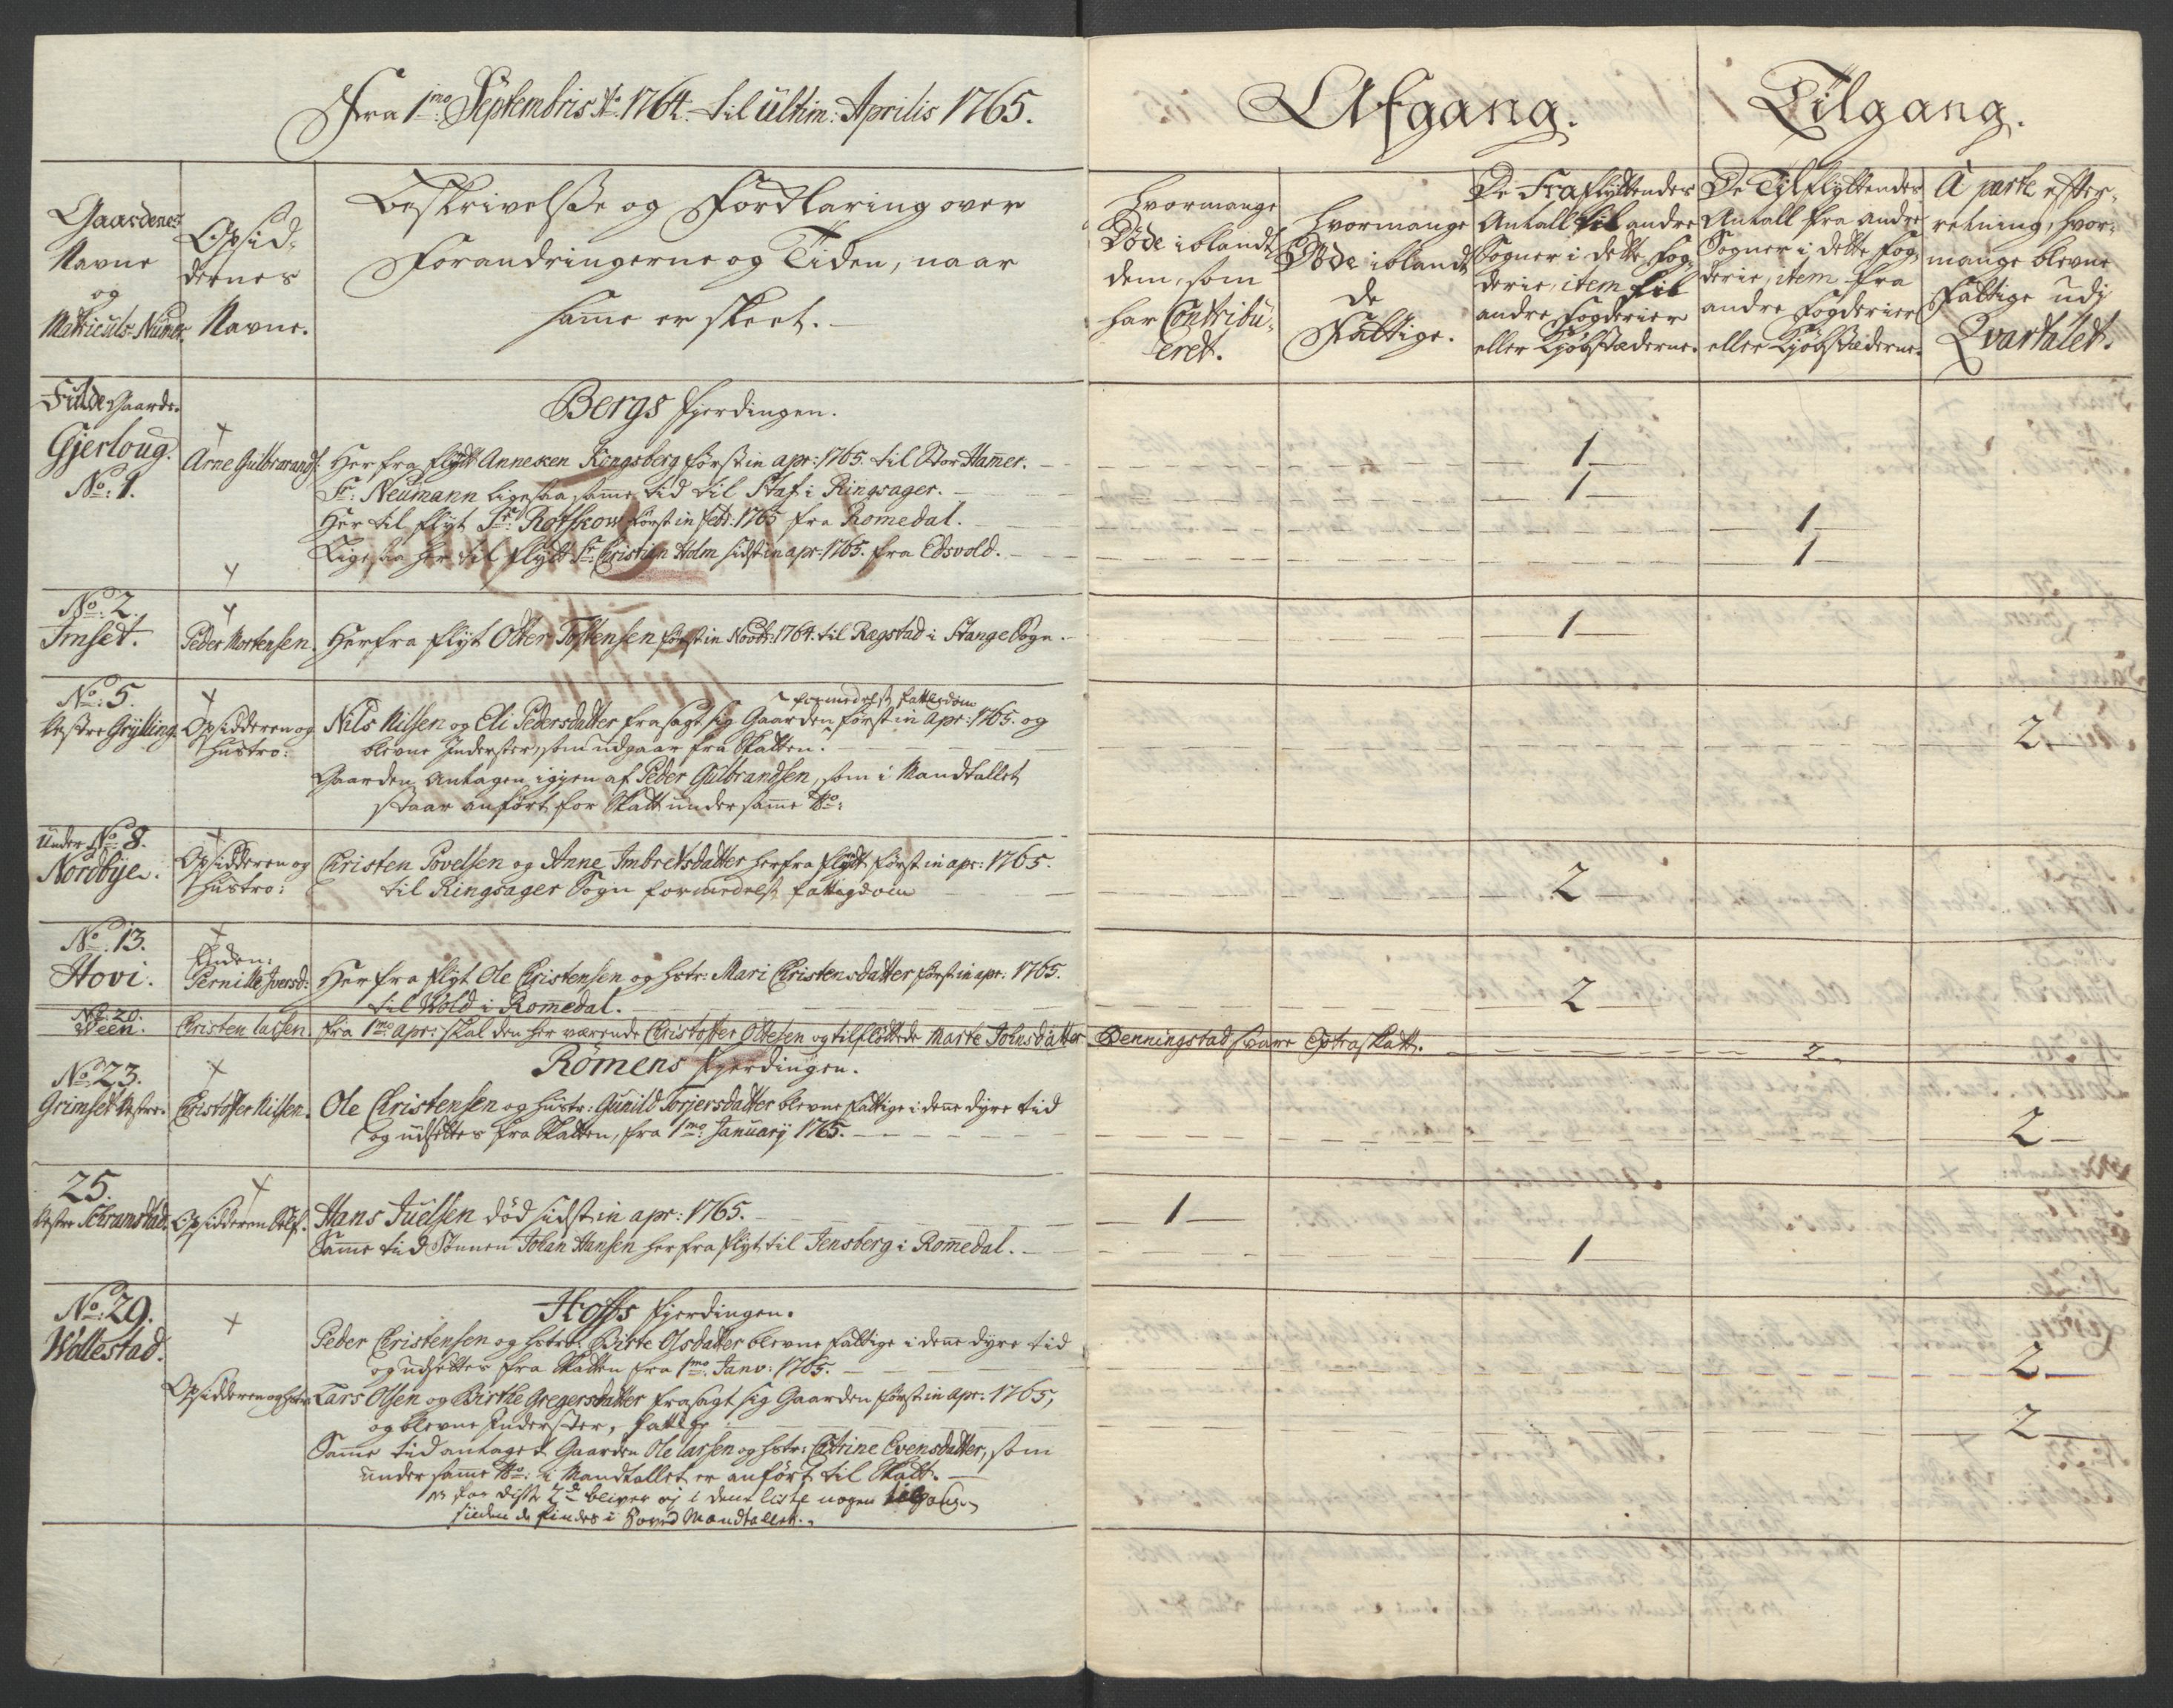 Fra 1mo Septembris Ao 1764. til ultim: Aprilis 1765.
Gaardenes Navne og Matriculs Numer.
Opsiddernes Navne.
Beskrivelsse og Forklaring over
Forandringerne og Tiden, naar
samme er skeet.
Afgang.
Tilgang.
Hvormange Døde iblandt dem, som har Contribueret.
Hvormange Døde iblandt de Fattige.
De Fraflyttendes Antall til andre Sogner i dette Fogderie, item til andre Fogderier eller Kjøbstæderne.
De Tilflyttendes Antall fra andre Sogner i dette Fogderie, item fra andre Fogderier eller Kjøbstæderne.
A parte efterretning, hvormange blevne Fattige udj Qvartalet.
Fulde Gaarde.
Bergs Fjerdingen.
Gjerloug. No: 1.
Arne Gulbrandsf:
Herfra flydt Annesken Kongsberg først in apr: 1765. til Stor Hamer. 1
Sr: Neumann ligesaa samme tid til Staf i Ringsager. 1
Her til flyt Sr: Rotskow først in Febr: 1765 fra Romedal. 1
Ligesaa her til flytt Sr: Christian Holm sidst in apr: 1765. fra Edsvold. 1
No: 2. Imset.
Peder Mortensen.
Herfra flyt Otter Tostensen først in Novbr: 1764. til Ragstad i Stange Sogn. 1
No: 5. Vestre Grylling
Opsidderen og Hustro:
formedelst fattigdom
Nils Nilsen og Eli Pedersdatter frasagt sig Gaarden først in Apr: 1765. og
blevne Inderster, som udgaar fra Skatten. 2
Gaarden Antagen igjen af Peder Gulbrandsen, som i Mandtallet
staar anført for Skatt under samme No:
Under No: 8. Nordbye.
Opsidderen og Hustro:
Christen Povelsen og Anne Imbretsdatter herfra flydt først in apr: 1765.
til Ringsager Sogn formedelst fattigdom 2
No: 13. Hovi.
Enken: Pernille Iversd:
Herfra flyt Ole Christensen og Hstr: Mari Christensdatter først in apr: 1765.
til Wold i Romedal. 2
No: 20. Ween.
Christen Larsen.
fra 1mo apr: skal den her værende Christoffer Ottesen og tilfløttede Marte Johnsdatter Denningstad svare Extraskatt. 2
Romens Fjerdingen.
No: 23. Grimset Vestre.
Christoffer Nilsen.
Ole Christensen og Hustr: Gunild Torjersdatter blevne fattige i denne dyre tid
og udsettes fra Skatten, fra 1mo January 1765. 2
25. Vestre Schramstad.
Opsidderen Self.
Hans Juelsen død sidst in apr: 1765. 1
Samme tid Sønnen Johan Hansen herfra flyt til Jensberg i Romedal. 1
Hoffs Fjerdingen.
No: 29. Wollestad.
Peder Christensen og Hstr: Birte Olsdatter blevne fattige i denne dyre tid
og udsettes fra Skatten fra 1mo Janv: 1765. 2
Opsidderen og Hustro
Lars Olsen og Birthe Gregersdatter frasagt sig Gaarden først in Apr: 1765,
og blevne Inderster, fattige 2
Samme tid antaget Gaarden Ole Larsen og Hstr: Catrine Evensdatter, som
under samme No: i Mandtallet er anført til Skatt.
for disse 2de bliver ej i denne liste nogen tilgang
siden de findes i Hoved Mandtallet.